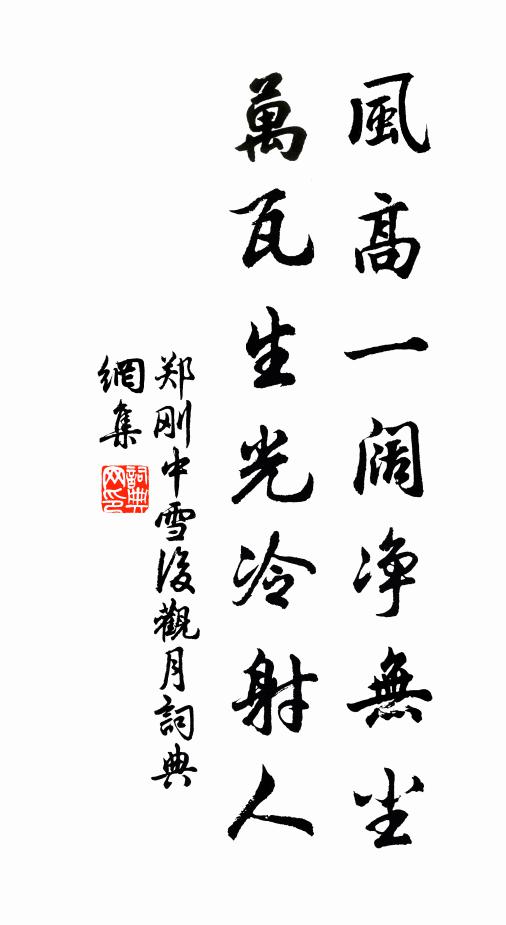 風高一阔净無尘
萬瓦生光冷射人
郑刚中雪後觀月詞典
網集
詞典网印